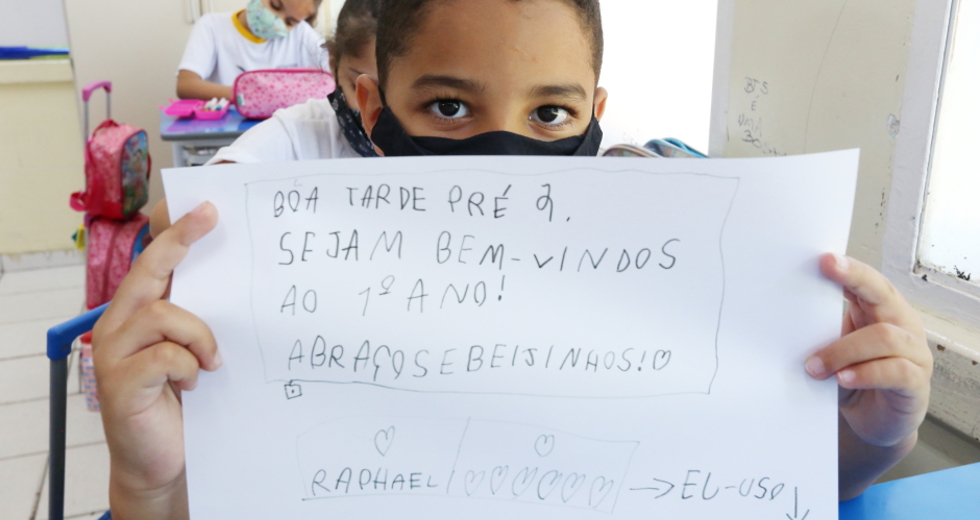 BOA TARDE PRÉ 2.
SEJAM BEM-VINDOS
AO 1º ANO!
ABRAÇOS E BEIJINHOS!
RAPHAEL → EU-USO
BTS
É